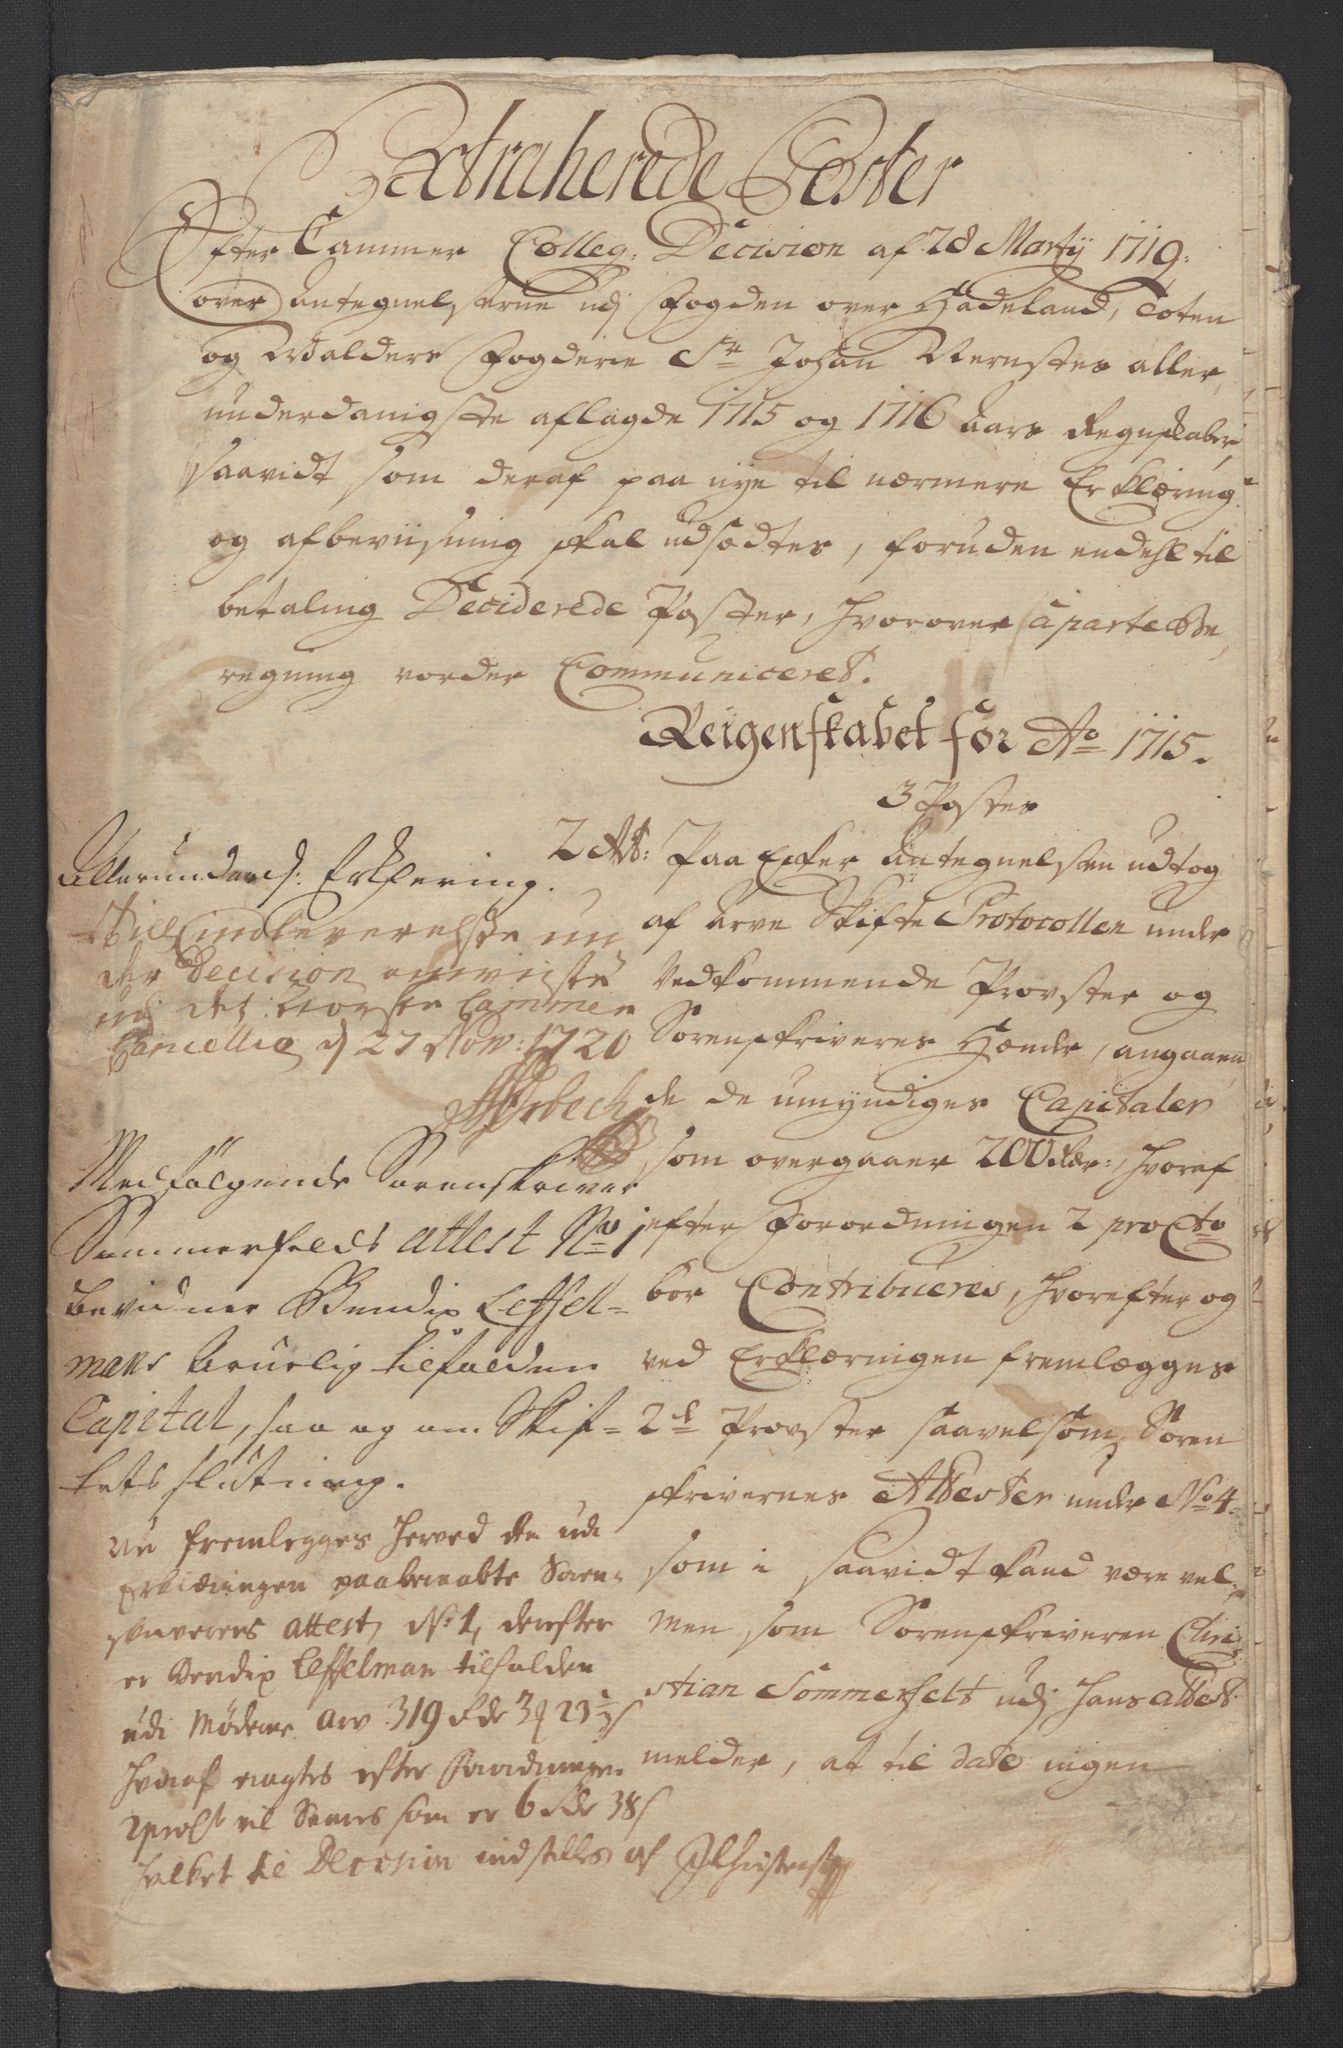 Extraherede Poster
Efter Cammer Colleg: Decision af 28 Martij 1719.
over Antegnelserne udj Fogden over Hadeland, Toten
og Walders Fogderie Sr Johan Wernstes aller,
underdanigste aflagde 1715 og 1716 Aars Regnskaber,
saavidt som deraf paa nye til nærmere Erklæring
og afbeviisning skal udsædtes, foruden endehl til
betaling Deciderede Poster, hvorover aparte Be,
regning vorder Communiceret.
Reigenskabet for Ao 1715.
3 Poster
2 Ad: Paa Efter Antegnelsen udtog
af Arve Skifte Protocollen under
Vedkommende Provster og
Sorenskriveres Hænder, angaaen,
de de umyndiges Capitaler
som overgaaer 200 Rdr:, hvoraf
efter Forordningen 2 pro Cto
bør Contribueres, hvorefter og
ved Erklæringen fremlægges
2de Provster saavelsom Soren
skrivernes Attester under No 4.
som i saavidt kand være vel,
men som Sorenskriveren Chri,
stian Sommerfelt udj hans attest
melder, at til dato ingen
Allerunderd: Erklering.
Till indleverelse un
der Decision anviiste
udj det Norske Cammer
Cancellie d 27 Nov: 1720
Medfølgende Sorenskriver
Sommerfelds attest No 1
bevidner Bendix Leffel=
mans Arvelig tilfalden
Capital, saa og om Skif=
tets slutning.
Nu fremlegges herved den udi
Erklæringen paaberaabte Soren,
skriverens attest No 1, derefter
er Bendix Leffelman tilfalden
udi Møderne Arv 319 Rdr 3 ₰ 23½ s
hvoraf eragtes efter Forordningen
2 proCt at Svares som er 6 Rdr 38 s
hvilket til Decision indstilles af